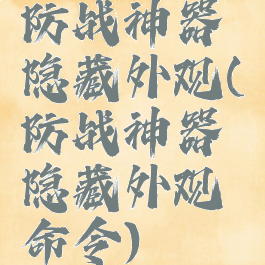 防战神器
隐藏外观(
防战神器
隐藏外观
命令)